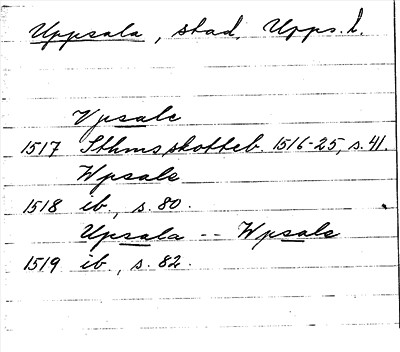 Uppsala, stad, Upps. l.
Vpsale
1517 Sthms skotteb. 1516-25, s. 41.
Wpsale
1518 ib., s. 80.
Upsala -- Wpsale
1519 ib., s. 82.